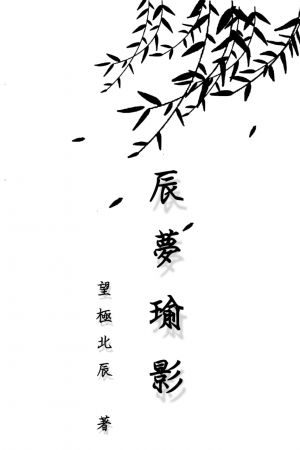 辰夢瑜影
望極北辰 著